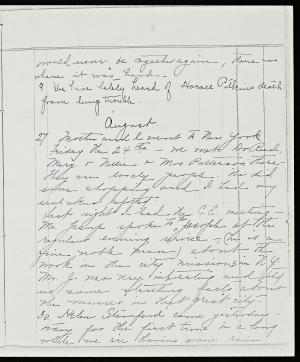 would never be together again, there was
where it was hard.
9. We have lately heard of Horace Pitkin's death
from lung trouble.
August
27 Mother and I went to New York
Friday the 24th - we met Dr. and
Mrs. & Nellie & Mrs Patterson there
they are lovely people. We did
some shopping and I had my
last night I lead the C.E. meeting -
Mr. Jelup spoke to the people at the
regular evening service - he is a
fine worth hearing about the
work in the city missions in N.Y.
Mr. J. was very interesting and told
us some startling facts about
the masses in that great city.
30. Helen Stamford came yesterday.
for the first time in a long
while we are having some rain